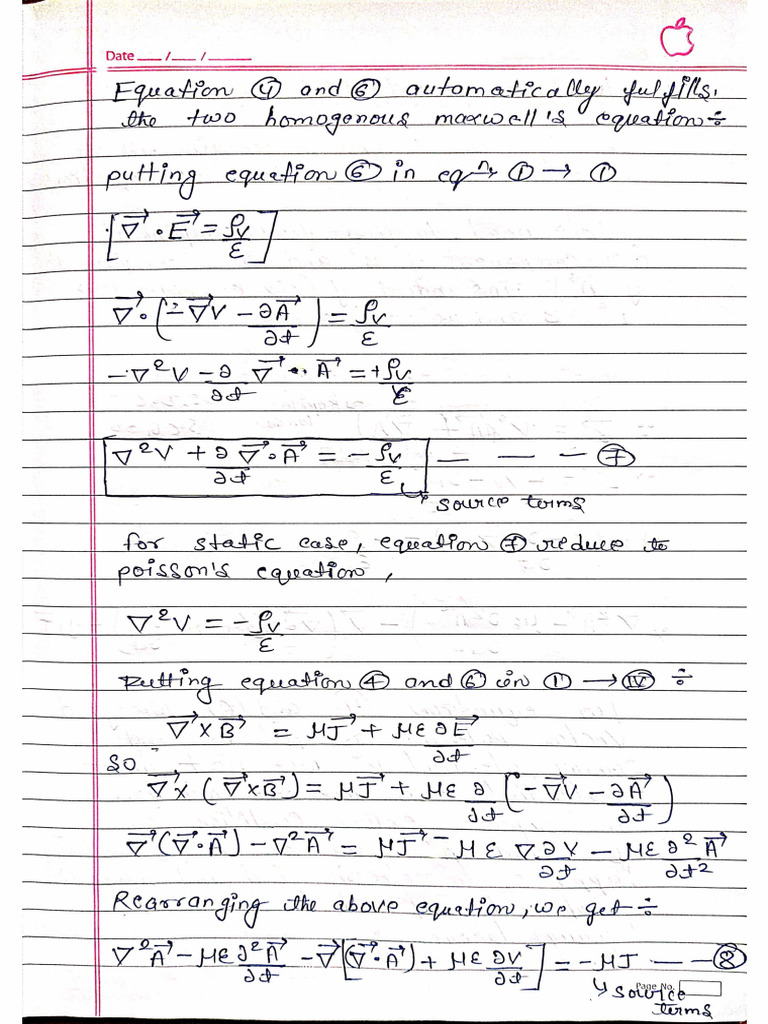 Date ___ / ___ / ______
Equation ④ and ⑥ automatically fulfills.
the two homogenous maxwell's equation ÷
putting equation ⑥ in eqⁿ, ① → ①
[∇⃗ • E⃗ = ρv/ε]
∇⃗ • (-∇⃗V - ∂A⃗/∂t) = ρv/ε
-∇²V - ∂/∂t ∇⃗ • A⃗ = +ρv/ε
∇²V + ∂/∂t ∇⃗ • A⃗ = -ρv/ε — — - ⑦
↳ source terms
for static case, equation ⑦ reduce to
poisson's equation,
∇²V = -ρv/ε
Putting equation ④ and ⑥ in ① → Ⓘⓥ ÷
∇⃗ × B⃗ = μJ⃗ + με ∂E⃗/∂t
so
∇⃗ × (∇⃗ × B⃗) = μJ⃗ + με ∂/∂t (-∇⃗V - ∂A⃗/∂t)
∇⃗(∇⃗ • A⃗) - ∇²A⃗ = μJ⃗ - με ∇ ∂V/∂t - με ∂²A⃗/∂t²
Rearranging the above equation, we get ÷
∇²A⃗ - με ∂²A⃗/∂t - ∇⃗[(∇⃗ • A⃗) + με ∂V/∂t] = -μJ — - - ⑧
Page No.
↳ source
terms